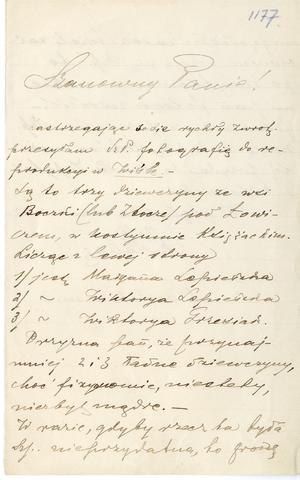 1177.
Szanowny Panie!
Zastrzegając sobie rychły zwrot,
przesyłam Sz.P. fotografię do re-
produkcyi w
Są to trzy dziewczyny ze wsi
Boczki (lub Zduny) pod Łowi-
czem, w kostyumie Księżackim.
Licząc z lewej strony
1/ jest Maryana Łapieńska
2/ ~ Wiktorya Łapieńska
3/ ~ Wiktorya
Przyzna pan, że przynaj-
mniej 2 i 3 ładne dziewczyny,
choć fizyonomie, niestety,
niezbyt mądre. —
W razie, gdyby rzecz ta była
Sz. nieprzydatną, to proszę